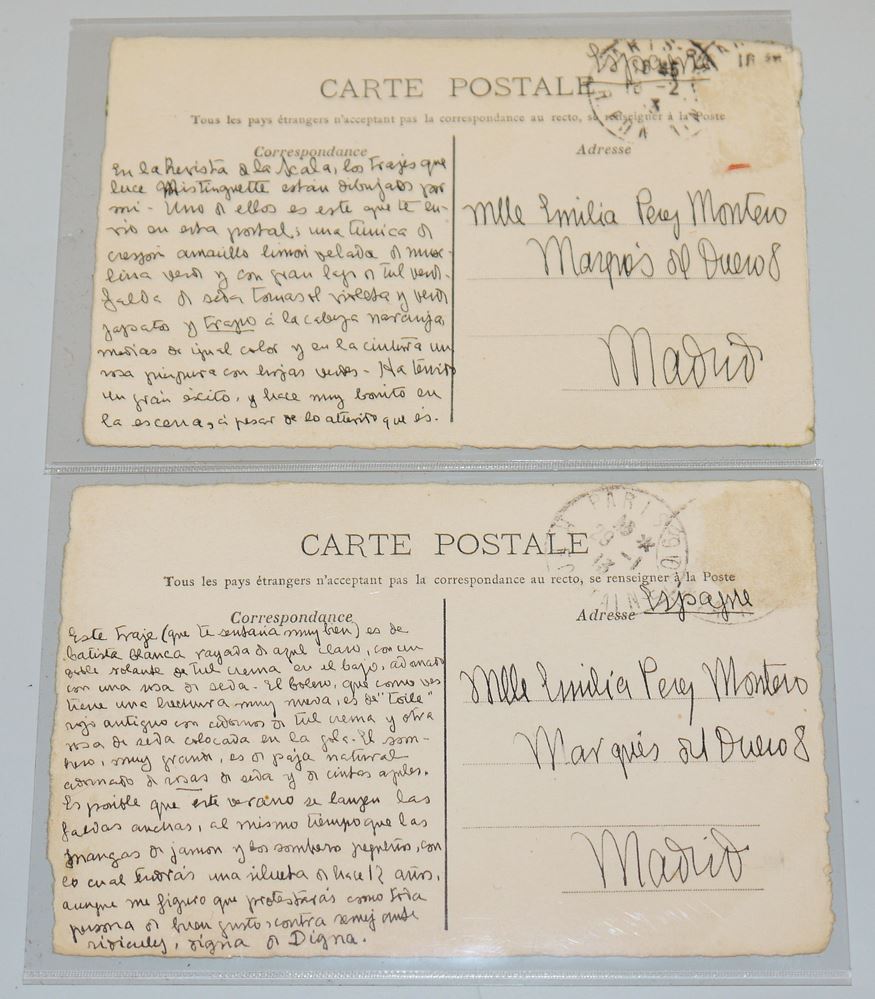 España
CARTE POSTALE
Tous les pays étrangers n'acceptant pas la correspondance au recto, se renseigner à la Poste
Correspondance
Adresse
En la Revista de la Scala, los trajes que
luce Mistinguette están dibujados por
mi. Uno de ellos es este que te en-
vío en esta postal; una túnica de
crespón amarillo limón velada de muse-
lina verde y con gran lazo de tul verde.
falda de seda tornasol violeta y verde
zapatos y trapo á la cabeza naranja,
medias de igual color y en la cintura una
rosa púrpura con hojas verdes - Ha tenido
un gran éxito, y hace muy bonito en
la escena, á pesar de lo atrevito que es.
Mlle Emilia Perez Montero
Marqués del Duero 8
Madrid
PARIS
CARTE POSTALE
Tous les pays étrangers n'acceptant pas la correspondance au recto, se renseigner à la Poste
Correspondance
Adresse
Espagne
Este traje (que te sentaria muy bien) es de
batista blanca rayada de azul claro, con un
doble volante de tul crema en el bajo, adornado
con una rosa de seda. El bolero, que como ves
tiene una hechura muy nueva, es de "toile"
rojo antiguo con adornos de tul crema y otra
rosa de seda colocada en la gola. El som-
brero, muy grande, es de paja natural
adornado de rosas de seda y de cintas azules.
Es posible que este verano se lanzen las
faldas anchas, al mismo tiempo que las
mangas de jamon y los sombreros pequeños, con
lo cual tendrás una silueta de hace 12 años,
aunque me figuro que protestarás como toda
persona de buen gusto contra semejante
ridiculez, digna de Digna.
Mlle Emilia Perez Montero
Marqués del Duero 8
Madrid